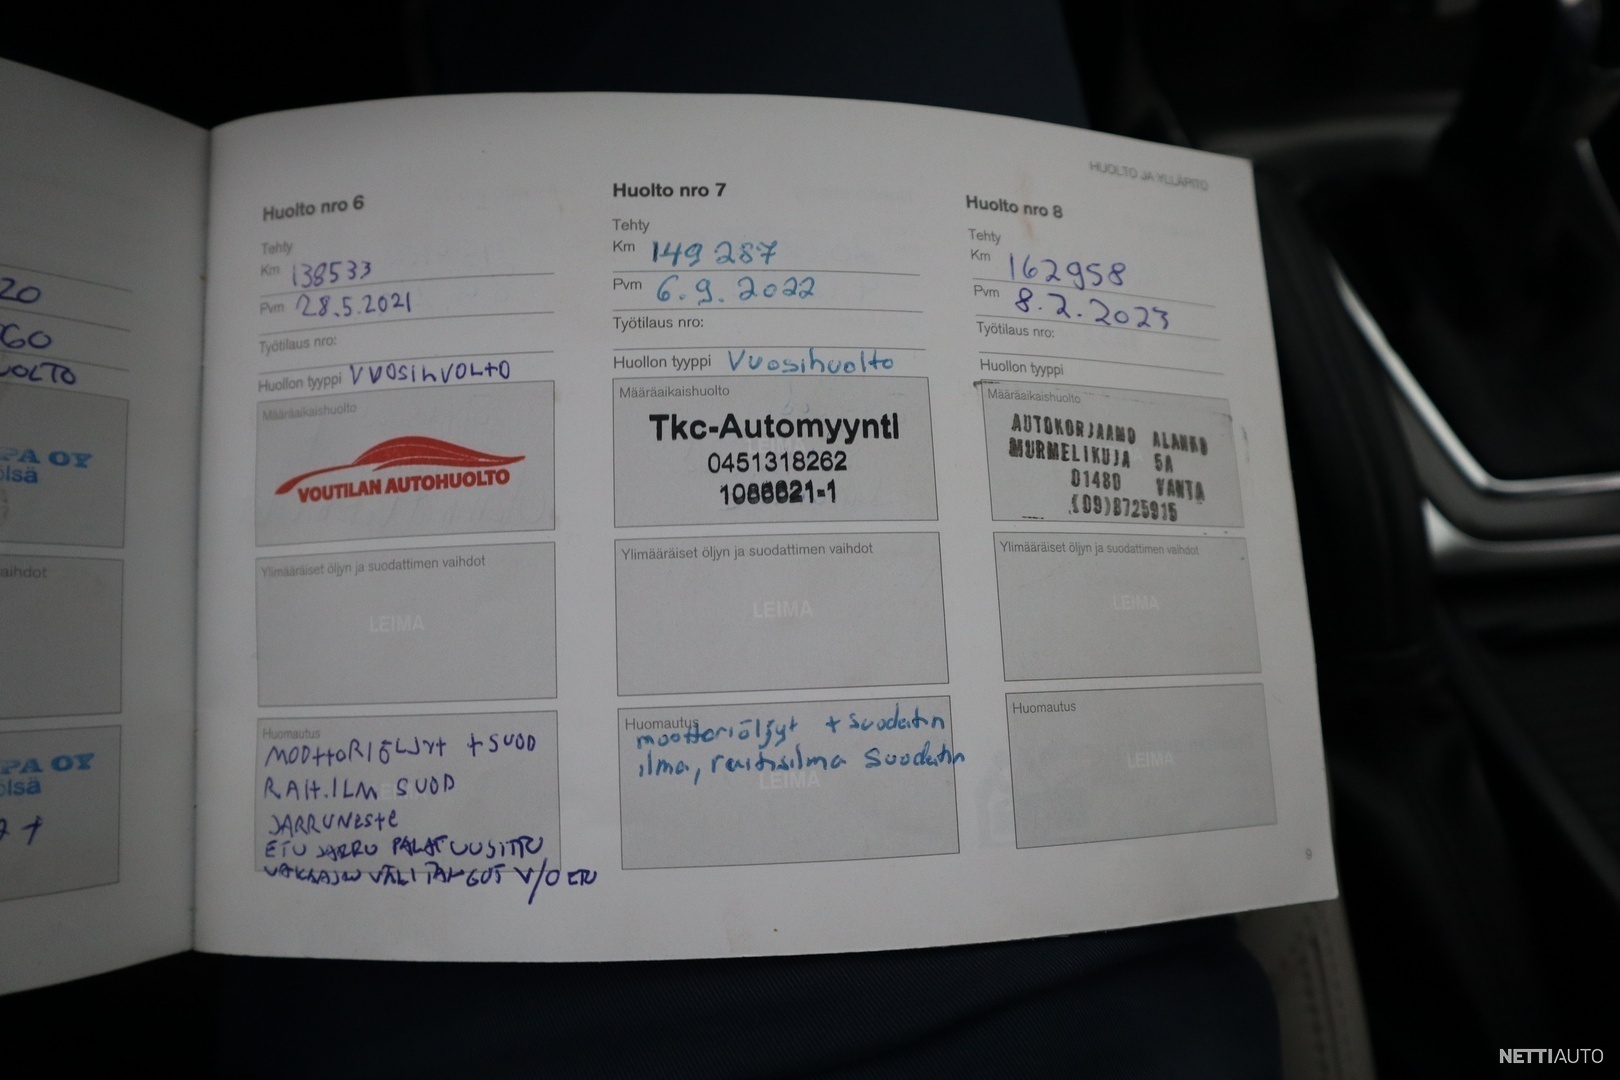 20
60
UOLTO
PA OY
ölsä
aihdot
PA OY
ölsä
HUOLTO JA YLLÄPITO
Huolto nro 6
Tehty
Km 138533
Pvm 28.5.2021
Työtilaus nro:
Huollon tyyppi VUOSIHUOLTO
Määräaikaishuolto
VOUTILAN AUTOHUOLTO
Ylimääräiset öljyn ja suodattimen vaihdot
LEIMA
Huomautus
MOOTTORIÖLJYT + SUOD
RAIT.ILM SUOD
JARRUNESTE
ETU JARRU PALAT UUSITTU
VAKAAJAN VÄLITANGOT V/O ETU
Huolto nro 7
Tehty
Km 149 287
Pvm 6.9.2022
Työtilaus nro:
Huollon tyyppi Vuosihuolto
Määräaikaishuolto
Tkc-Automyynti
0451318262
Ylimääräiset öljyn ja suodattimen vaihdot
LEIMA
Huomautus
moottoriöljyt + suodatin
ilma, raitisilma suodatin
LEIMA
Huolto nro 8
Tehty
Km 162958
Pvm 8.2.2023
Työtilaus nro:
Huollon tyyppi
Määräaikaishuolto
AUTOKORJAAMO ALANKO
MURMELIKUJA 5A
01480 VANTA
(09)8725915
Ylimääräiset öljyn ja suodattimen vaihdot
LEIMA
Huomautus
LEIMA
9
NETTIAUTO